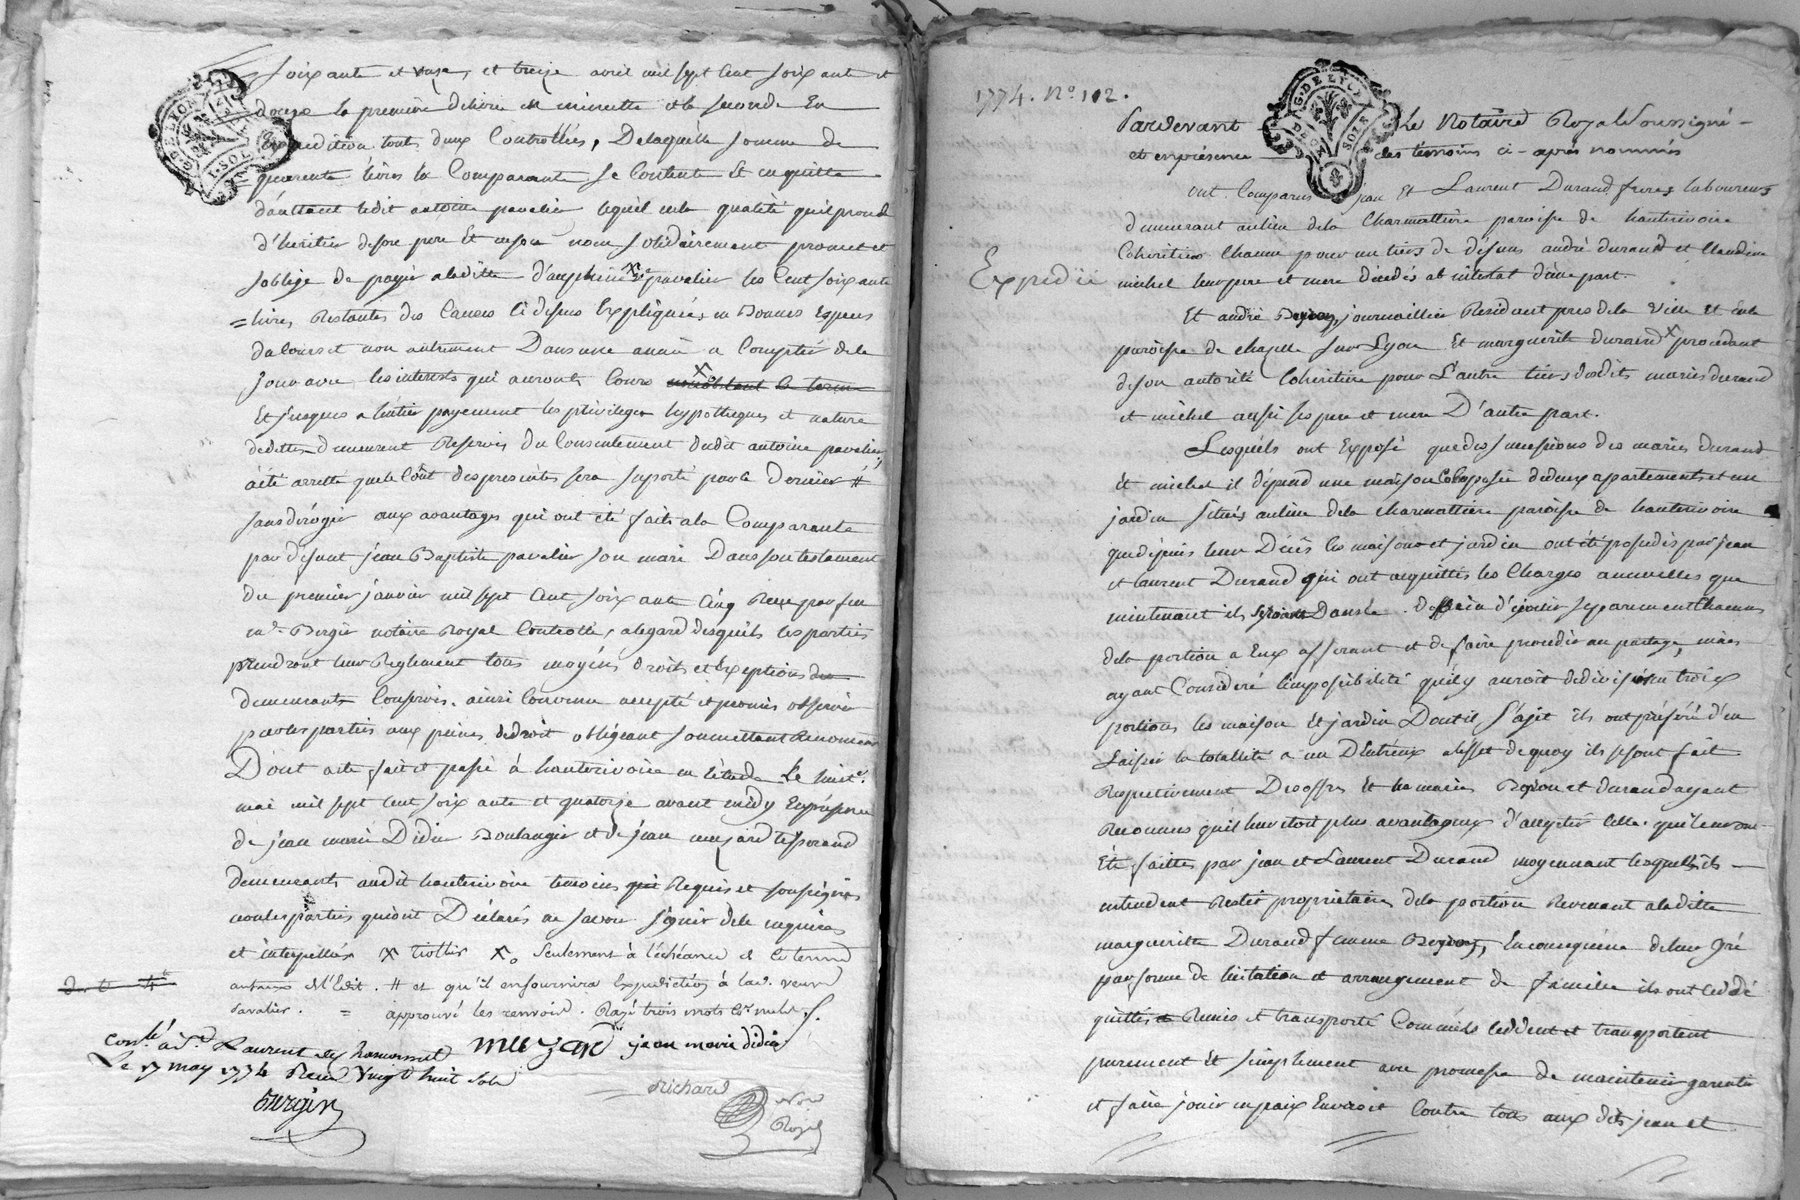 soixante et onze, et treize avril mil sept cent soixante et
douze la premiere délivré en minutte et la seconde en
expedition touts deux controllés, De laquelle somme de
quarente livres la Comparante se Contente et en quitte
d'autant ledit antoine pavalier lequel en la qualité qu'il prend
d'heritier de son pere Et en son nom solidairement promet et
s'oblige de payer a la ditte pavalier les Cent soixante
livres Restantes des Causes Ci dessus Expliquées en Bonnes Especes
de Cours et non autrement Dans une année a Compter de ce
jour avec les interets qui auront Cours nonobstant le terme
Et jusques a l'entier payement les privileges hypotheques et nature
de dettes Demeurent Reservés du Consentement dudit antoine pavalier
a été arretté que le Coût des presentes sera suporté par le Dernier #
sans déroger aux avantages qui ont été faits a la Comparante
par défunt jean Baptiste pavalier son mari Dans son testament
du premier janvier mil sept Cent soixante Cinq Reçu par feu
me Bergér notaire Royal Controllé, a legard desquels les parties
prendront leur Reglement tous moyens droits et Exceptions
demeurants Conservés. ainsi Convenu accepté et promis observer
par les parties aux peines de droit obligeant soumettant Renonçeant
Dont acte fait et passé à hauterivoire en l'étude Le huit.
mai mil sept Cent soixante et quatorze avant midy En presence
de jean marie Didier Boulanger et de jean muzard tisserand
demeurants audit hauterivoire temoins Requis et soussignés
non les parties qui ont Déclarés ne savoir signer de ce enquises
et interpellées x trollier x. seulement à l'échéance de ce terme
aux termes de l'Edit. # et qu'il en fournira Expedition à lad. veuve
Pavalier. = approuvé les renvois. Rayé trois mots nuls.
Conlé à St Laurent de chamousset muzard jean marie didier
Le 17 may 1774 Reçu Vingt huit sols
Richard
Bergier
Nore
Royal
G. DE LYON
1. SOL
1774. N° 112.
G. DE LYON
SOLS
Pardevant Le Notaire Royal Soussigné
et en présence des temoins ci-après nommés
ont Comparus jean Et Laurent Durand freres laboureurs
demeurant au lieu de la Charmattiere paroisse de hauterivoire
Coheritiers Chacun pour un tiers de défuns andré durand et Claudine
Expedié
michel leur pere et mere décédés ab intestat d'une part.
Et andré journaillier Residant pres de la ville et en la
paroisse de chapelle sur Lyon Et marguerite durand x procedant
de son autorité Coheritiere pour L'autre tiers desdits mariés durand
et michel aussi ses pere et mere D'autre part.
Lesquels ont Exposé que des successions des mariés durand
Et michel il dépend une maison Composée de deux appartements et un
jardin situés au lieu de la charmattiere paroisse de hauterivoire
que depuis leur Décès les maison et jardin ont été possedés par jean
et laurent Durand qui ont acquittés les Charges annuelles que
maintenant ils Dans le Dessein d'jouir separement Chacuns
de la portion a Eux afferante et de faire proceder au partage, mais
ayant Consideré l'impossibilité qu'il y auroit de diviser en trois
portions les maison Et jardin Dont il s'agit ils ont préféré d'en
Laisser la totallité a un D'Entreux a l'effet de quoy ils se sont fait
Respectivement Des offres Et les mariés et durand ayant
Reconnus qu'il leur etoit plus avantageux d'accepter Celle qui leur ont
Eté faittes par jean et Laurent Durand moyennant lesquelles ils
entendent Rester proprietaires de la portion Revenant a la ditte
margueritte Durand femme En consequence de leur gré
par forme de licitation et arrangement de famille ils ont Cedé
quittés Remis et transporté Comme ils Cedent et transportent
purement Et simplement avec promesse de maintenir garentir
et faire jouir en paix Envers et Contre tous aux dits jean et